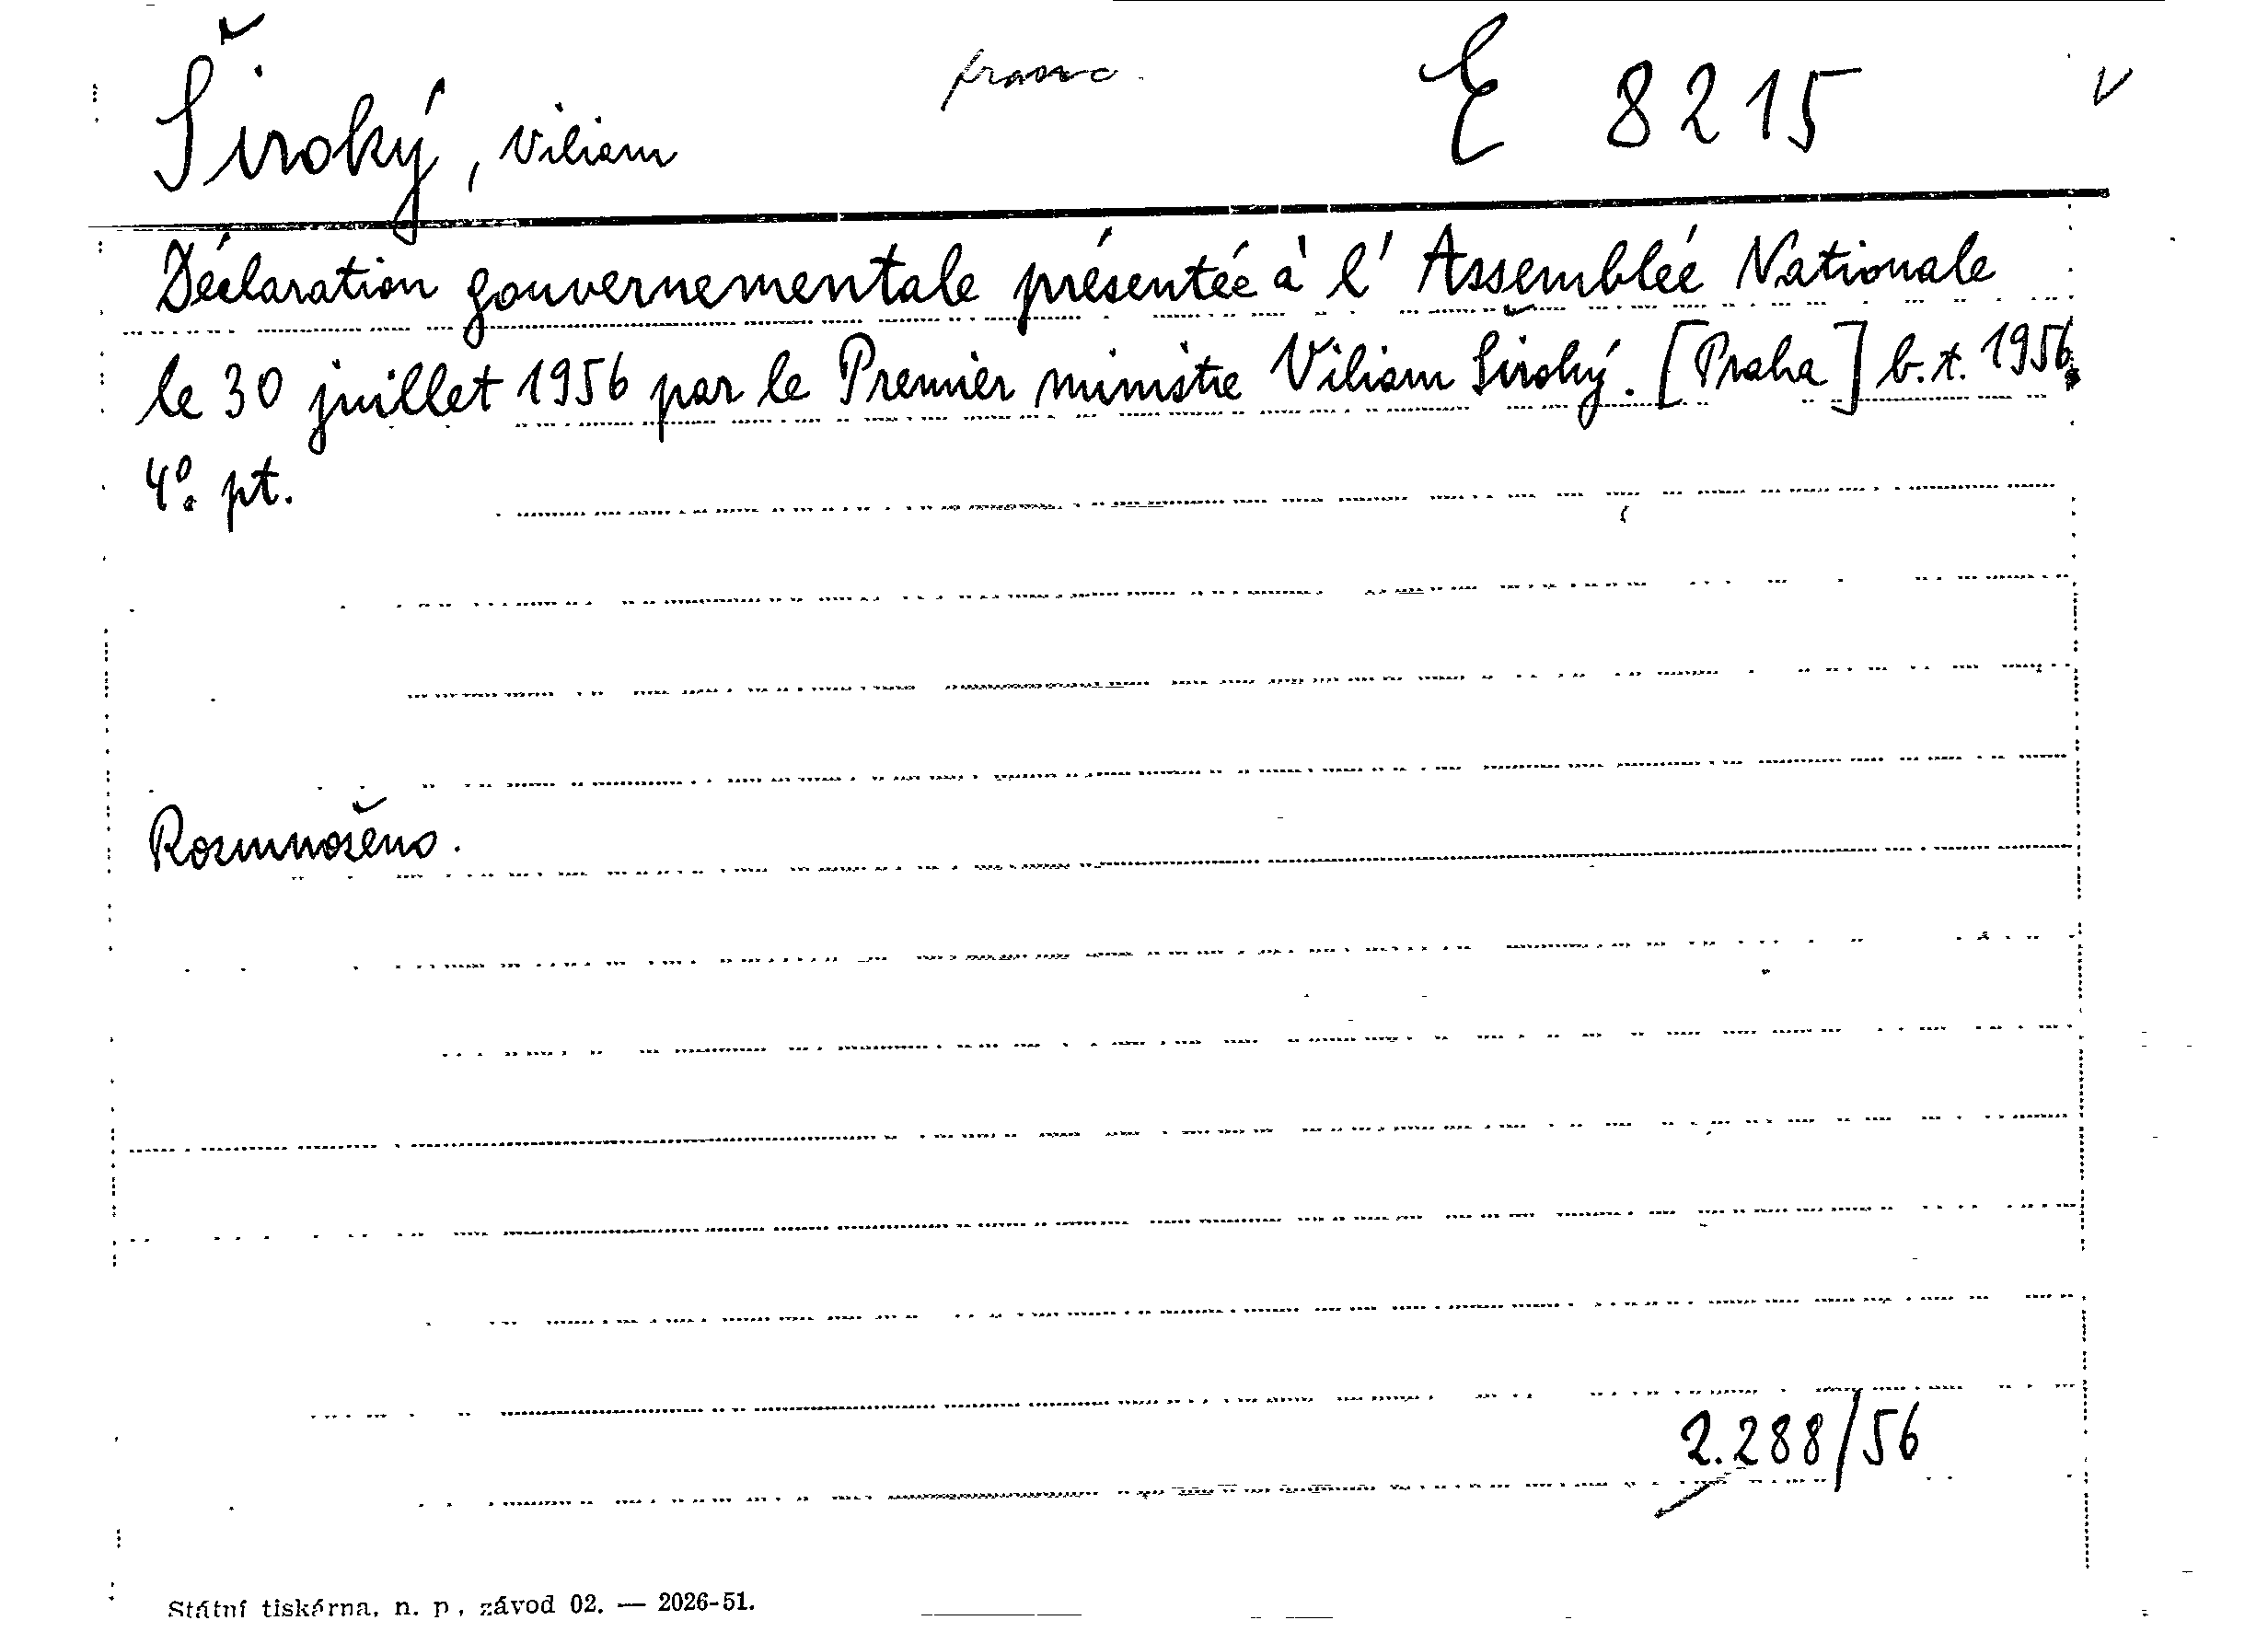 Široký, Viliam franc. E 8215 V
Déclaration gouvernementale présentée à l' Assemblée Nationale
le 30 juillet 1956 par le Premier ministre Viliam Široký. [Praha] b.t. 1956.
4°. pt.
Rozmnoženo.
2.288/56
Státní tiskárna, n. p., závod 02. — 2026-51.